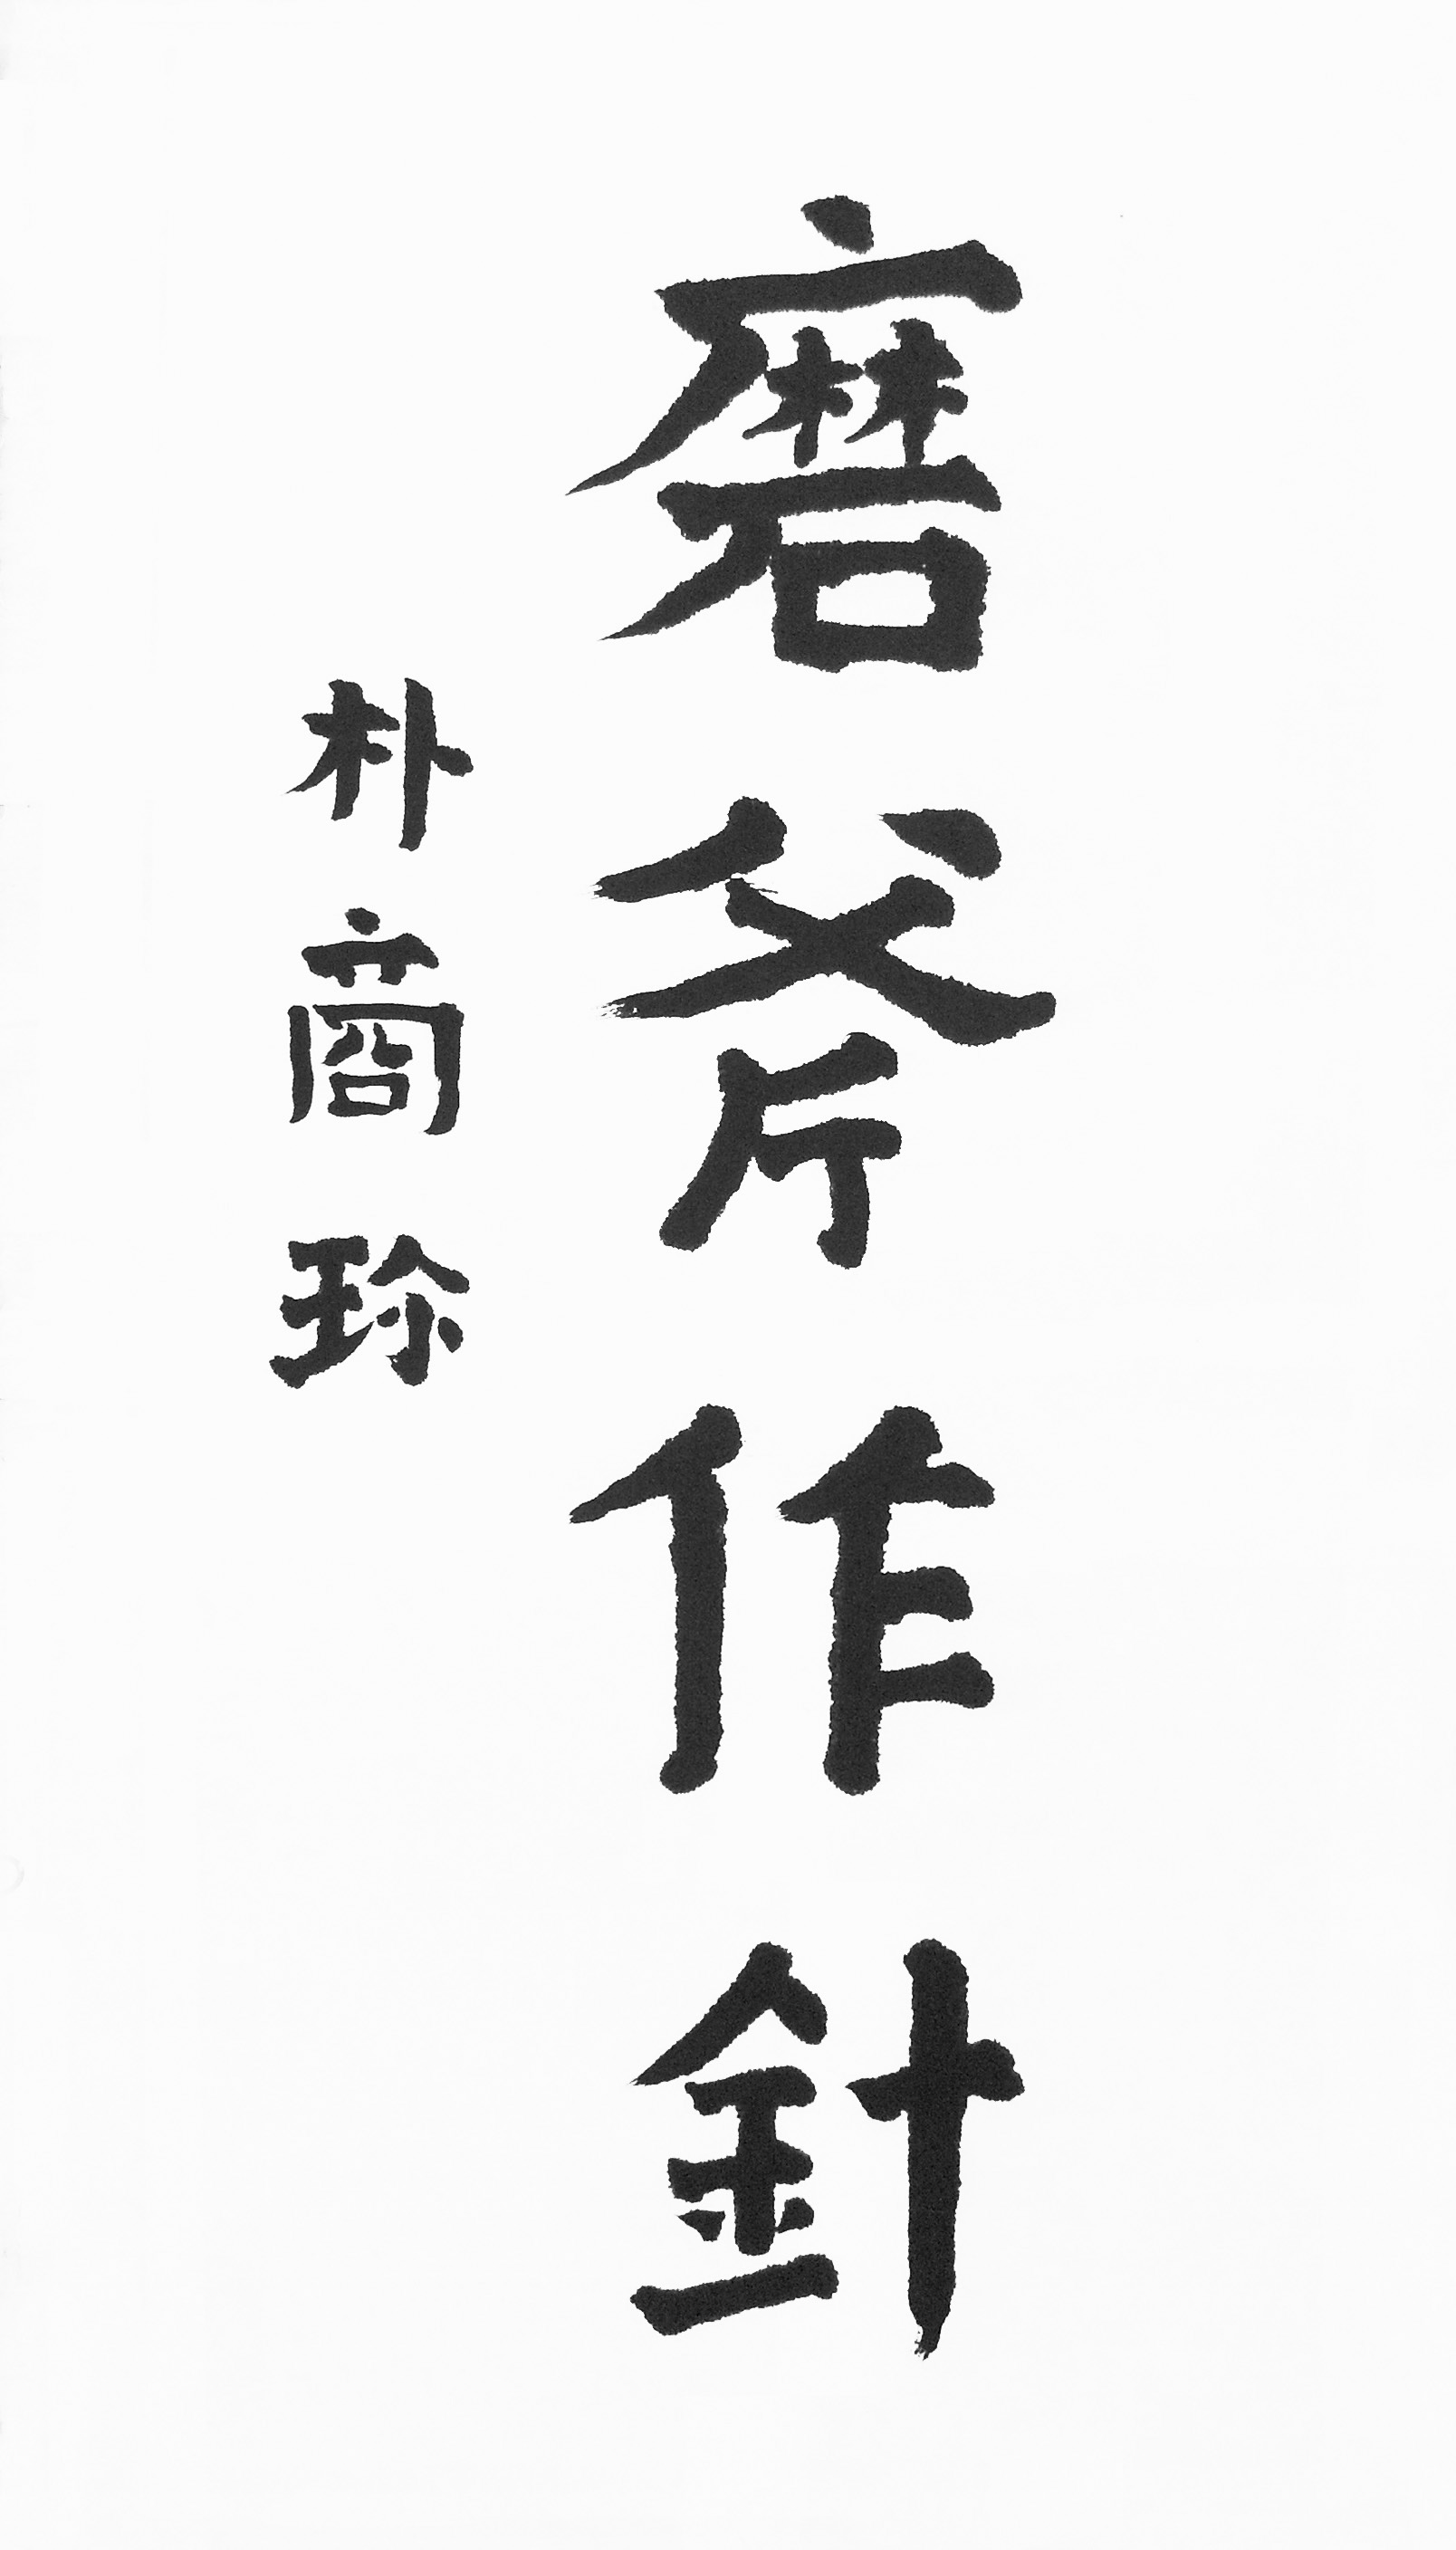 磨斧作針
朴商珎